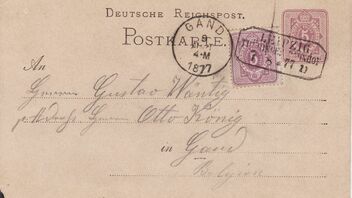 DEUTSCHE REICHSPOST.
POSTKARTE.
GAND
9
4-M
1877
LEIPZIG
8 77
5
5
An
Herrn Gustav Wantig
Herrn Otto König
in Gand
Belgien